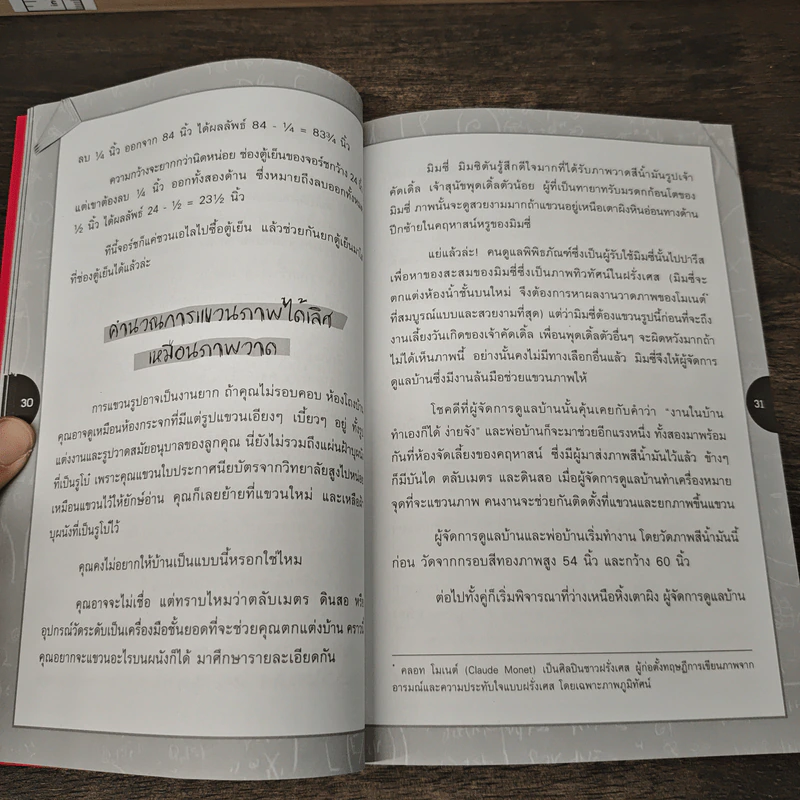 ลบ ¼ นิ้ว ออกจาก 84 นิ้ว ได้ผลลัพธ์ 84 - ¼ = 83¾ นิ้ว
ความกว้างจะยากกว่านิดหน่อย ช่องตู้เย็นของจอร์ชกว้าง 24
แต่เขาต้องลบ ¼ นิ้ว ออกทั้งสองด้าน ซึ่งหมายถึงลบออกทั้งหมด
½ นิ้ว ได้ผลลัพธ์ 24 - ½ = 23½ นิ้ว
ทีนี้จอร์ชก็แค่ชวนเอไลไปซื้อตู้เย็น แล้วช่วยกันยกตู้เย็นมา
ที่ช่องตู้เย็นได้แล้วล่ะ
คำนวณการแขวนภาพได้เลิศ
เหมือนภาพวาด
30
การแขวนรูปอาจเป็นงานยาก ถ้าคุณไม่รอบคอบ ห้องโถงบ้าน
คุณอาจดูเหมือนห้องกระจกที่มีแต่รูปแขวนเอียงๆ เบี้ยวๆ อยู่ ทั้งรูป
แต่งงานและรูปวาดสมัยอนุบาลของลูกคุณ นี่ยังไม่รวมถึงแผ่นฝ้าบุผนัง
ที่เป็นรูโบ๋ เพราะคุณแขวนใบประกาศนียบัตรจากวิทยาลัยสูงไปหน่อย
เหมือนแขวนไว้ให้ยักษ์อ่าน คุณก็เลยย้ายที่แขวนใหม่ และเหลือฝ้า
บุผนังที่เป็นรูโบ๋ไว้
คุณคงไม่อยากให้บ้านเป็นแบบนี้หรอกใช่ไหม
คุณอาจจะไม่เชื่อ แต่ทราบไหมว่าตลับเมตร ดินสอ หรือ
อุปกรณ์วัดระดับเป็นเครื่องมือชั้นยอดที่จะช่วยคุณตกแต่งบ้าน คราวนี้
คุณอยากจะแขวนอะไรบนผนังก็ได้ มาศึกษารายละเอียดกัน
มิมซี่ มิมซิตันรู้สึกดีใจมากที่ได้รับภาพวาดสีน้ำมันรูปเจ้า
คัดเดิ้ล เจ้าสุนัขพุดเดิ้ลตัวน้อย ผู้ที่เป็นทายาทรับมรดกก้อนโตของ
มิมซี่ ภาพนั้นจะดูสวยงามมากถ้าแขวนอยู่เหนือเตาผิงหินอ่อนทางด้าน
ปีกซ้ายในคฤหาสน์หรูของมิมซี่
แย่แล้วล่ะ! คนดูแลพิพิธภัณฑ์ซึ่งเป็นผู้รับใช้มิมซี่นั้นไปปารีส
เพื่อหาของสะสมของมิมซี่ซึ่งเป็นภาพทิวทัศน์ในฝรั่งเศส (มิมซี่จะ
ตกแต่งห้องน้ำชั้นบนใหม่ จึงต้องการหาผลงานวาดภาพของโมเนต์*
ที่สมบูรณ์แบบและสวยงามที่สุด) แต่ว่ามิมซี่ต้องแขวนรูปนี้ก่อนที่จะถึง
งานเลี้ยงวันเกิดของเจ้าคัดเดิ้ล เพื่อนพุดเดิ้ลตัวอื่นๆ จะผิดหวังมากถ้า
ไม่ได้เห็นภาพนี้ อย่างนั้นคงไม่มีทางเลือกอื่นแล้ว มิมซี่จึงให้ผู้จัดการ
ดูแลบ้านซึ่งมีงานล้นมือช่วยแขวนภาพให้
31
โชคดีที่ผู้จัดการดูแลบ้านนั้นคุ้นเคยกับคำว่า "งานในบ้าน
ทำเองก็ได้ ง่ายจัง" และพ่อบ้านก็จะมาช่วยอีกแรงหนึ่ง ทั้งสองมาพร้อม
กันที่ห้องจัดเลี้ยงของคฤหาสน์ ซึ่งมีผู้มาส่งภาพสีน้ำมันไว้แล้ว ข้างๆ
ก็มีบันได ตลับเมตร และดินสอ เมื่อผู้จัดการดูแลบ้านทำเครื่องหมาย
จุดที่จะแขวนภาพ คนงานจะช่วยกันติดตั้งที่แขวนและยกภาพขึ้นแขวน
ผู้จัดการดูแลบ้านและพ่อบ้านเริ่มทำงาน โดยวัดภาพสีน้ำมันนี้
ก่อน วัดจากกรอบสีทองภาพสูง 54 นิ้ว และกว้าง 60 นิ้ว
ต่อไปทั้งคู่ก็เริ่มพิจารณาที่ว่างเหนือหิ้งเตาผิง ผู้จัดการดูแลบ้าน
* คลอท โมเนต์ (Claude Monet) เป็นศิลปินชาวฝรั่งเศส ผู้ก่อตั้งทฤษฎีการเขียนภาพจาก
อารมณ์และความประทับใจแบบฝรั่งเศส โดยเฉพาะภาพภูมิทัศน์